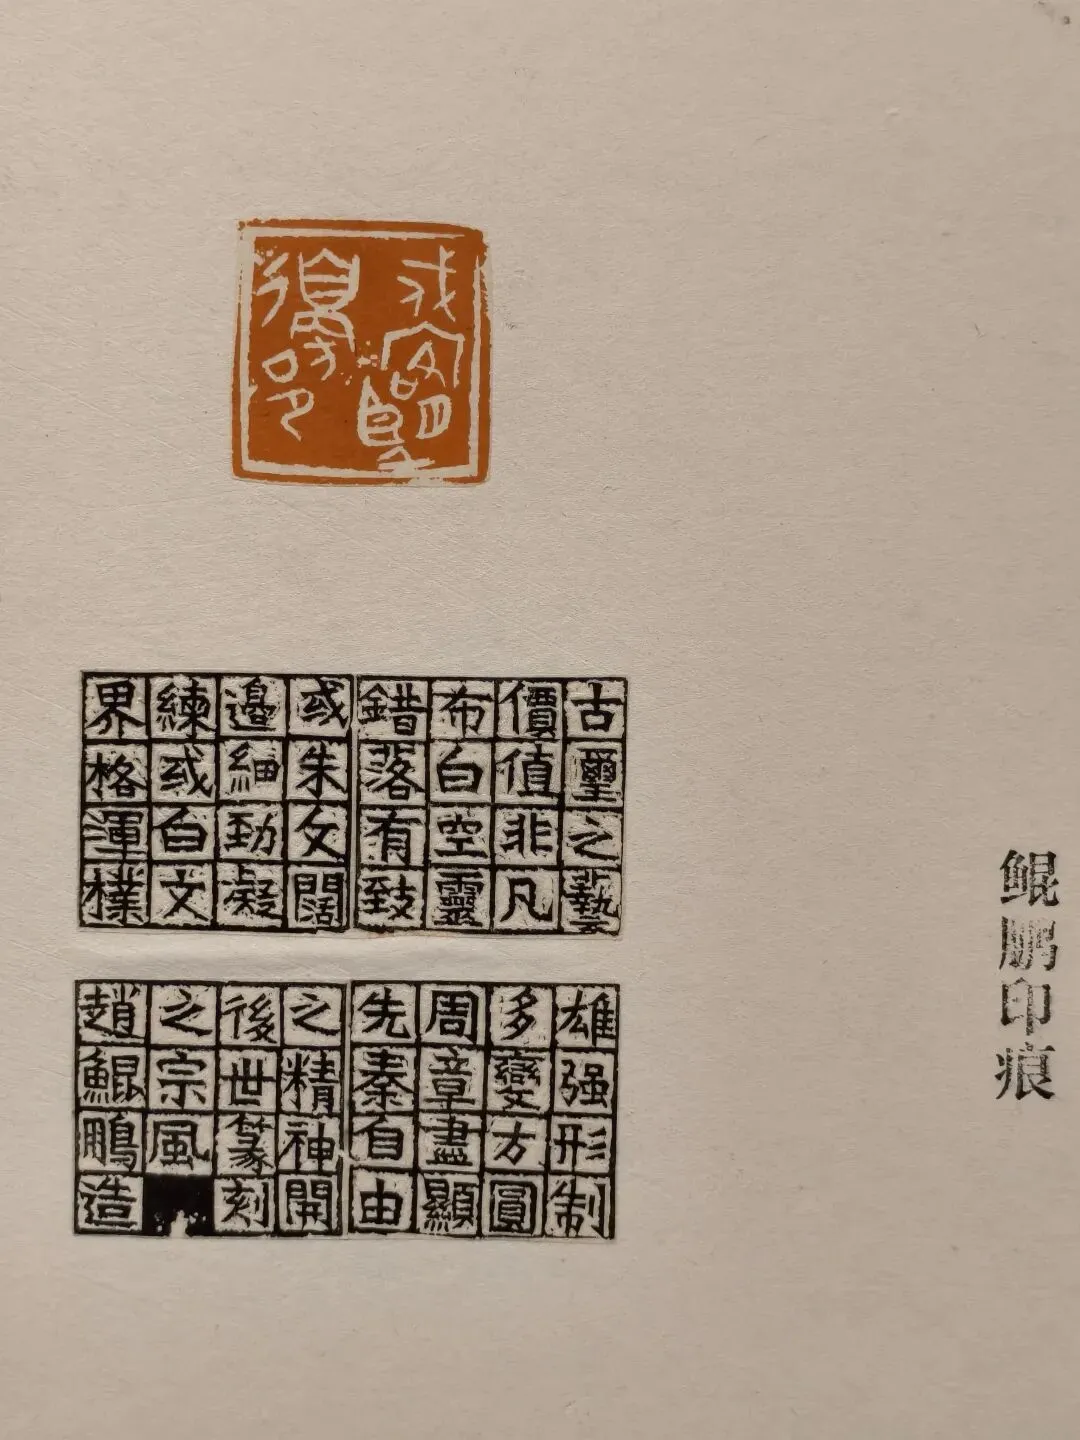 鲲鹏印痕
古壐之藝
價值非凡
布白空靈
錯落有致
或朱文闊
邊細勁凝
練或白文
界格渾樸
雄强形制
多變方圓
周章盡顯
先秦自由
之精神開
後世篆刻
之宗風
趙鯤鵬造